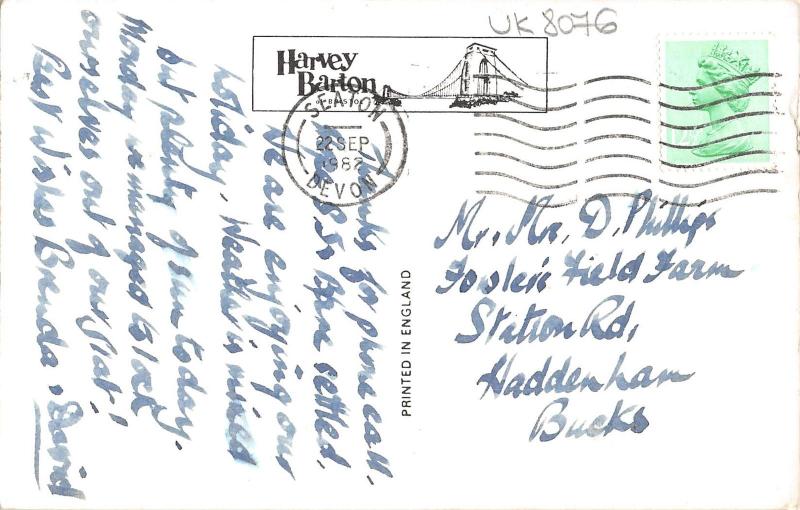 UK 8076
Harvey
Barton
OF BRISTOL
SEATON
22 SEP
1982
DEVON
Thanks for phone call,
settled.
We are enjoying our
holiday, Weather is mixed
but plenty of sun today.
Monday we managed to lock
ourselves out of our flat!
Best Wishes Brenda & David
PRINTED IN ENGLAND
Mr. Mrs. D. Phillips
Foster's Field Farm
Station Rd,
Haddenham
Bucks